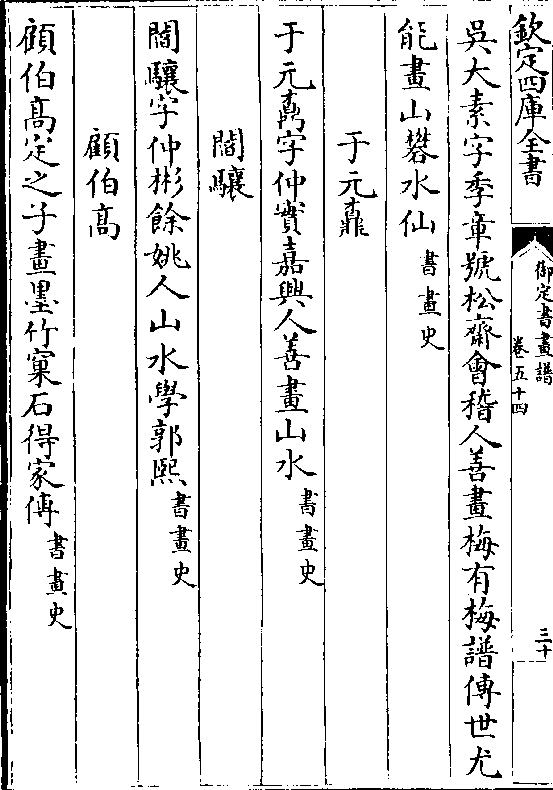 欽定四庫全書
御定書畫譜
卷五十四
三十
吳大素字季章號松齋會稽人善畫梅有梅譜傳世尤
能畫山礬水仙書畫史
于元
于元字仲實嘉興人善畫山水書畫史
閻驤
閻驤字仲彬餘姚人山水學郭熙書畫史
顧伯髙
顧伯髙定之子畫墨竹窠石得家傳書畫史